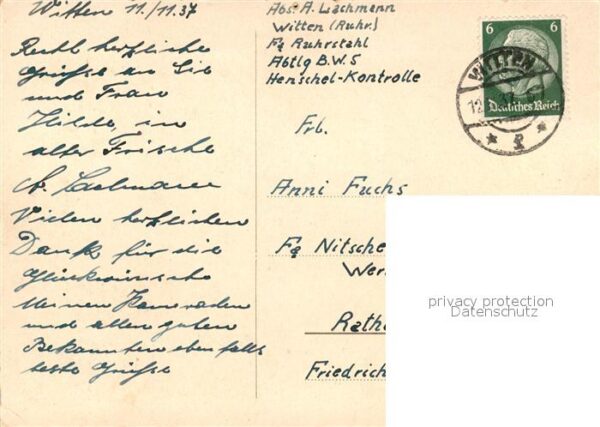 Witten 11./11.37
Recht herzliche
Grüsse an Sie
und Frau
Hilde, in
alter Frische
A. Lachmann
Vielen herzlichen
Dank für die
Glückwünsche
Meinen Kameraden
und allen guten
Bekannten ebenfalls
beste Grüsse
Abs. A. Lachmann
Witten (Ruhr.)
Fa Ruhrstahl
Abtlg B.W.5
Henschel-Kontrolle
6 6
Deutsches Reich
WITTEN
Frl.
Anni Fuchs
Fa Nitsche
Wer
Rath
Friedrich
privacy protection
Datenschutz